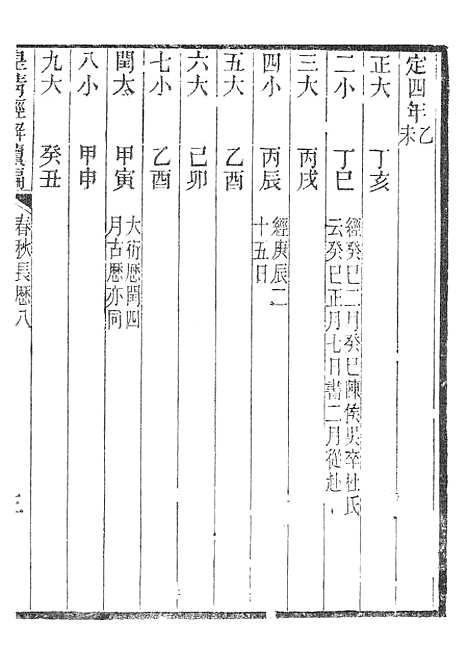 定四年乙未
正大 丁亥
二小 丁巳 經癸巳二月癸巳陳侯吳卒杜氏
云癸巳正月七日書二月從赴
三大 丙戌
四小 丙辰 經庚辰二
十五日
五大 乙酉
六大 己卯
七小 乙酉
閏大 甲寅 大衍曆閏四
月古曆亦同
八小 甲申
九大 癸丑
皇清經解續編 春秋長曆八